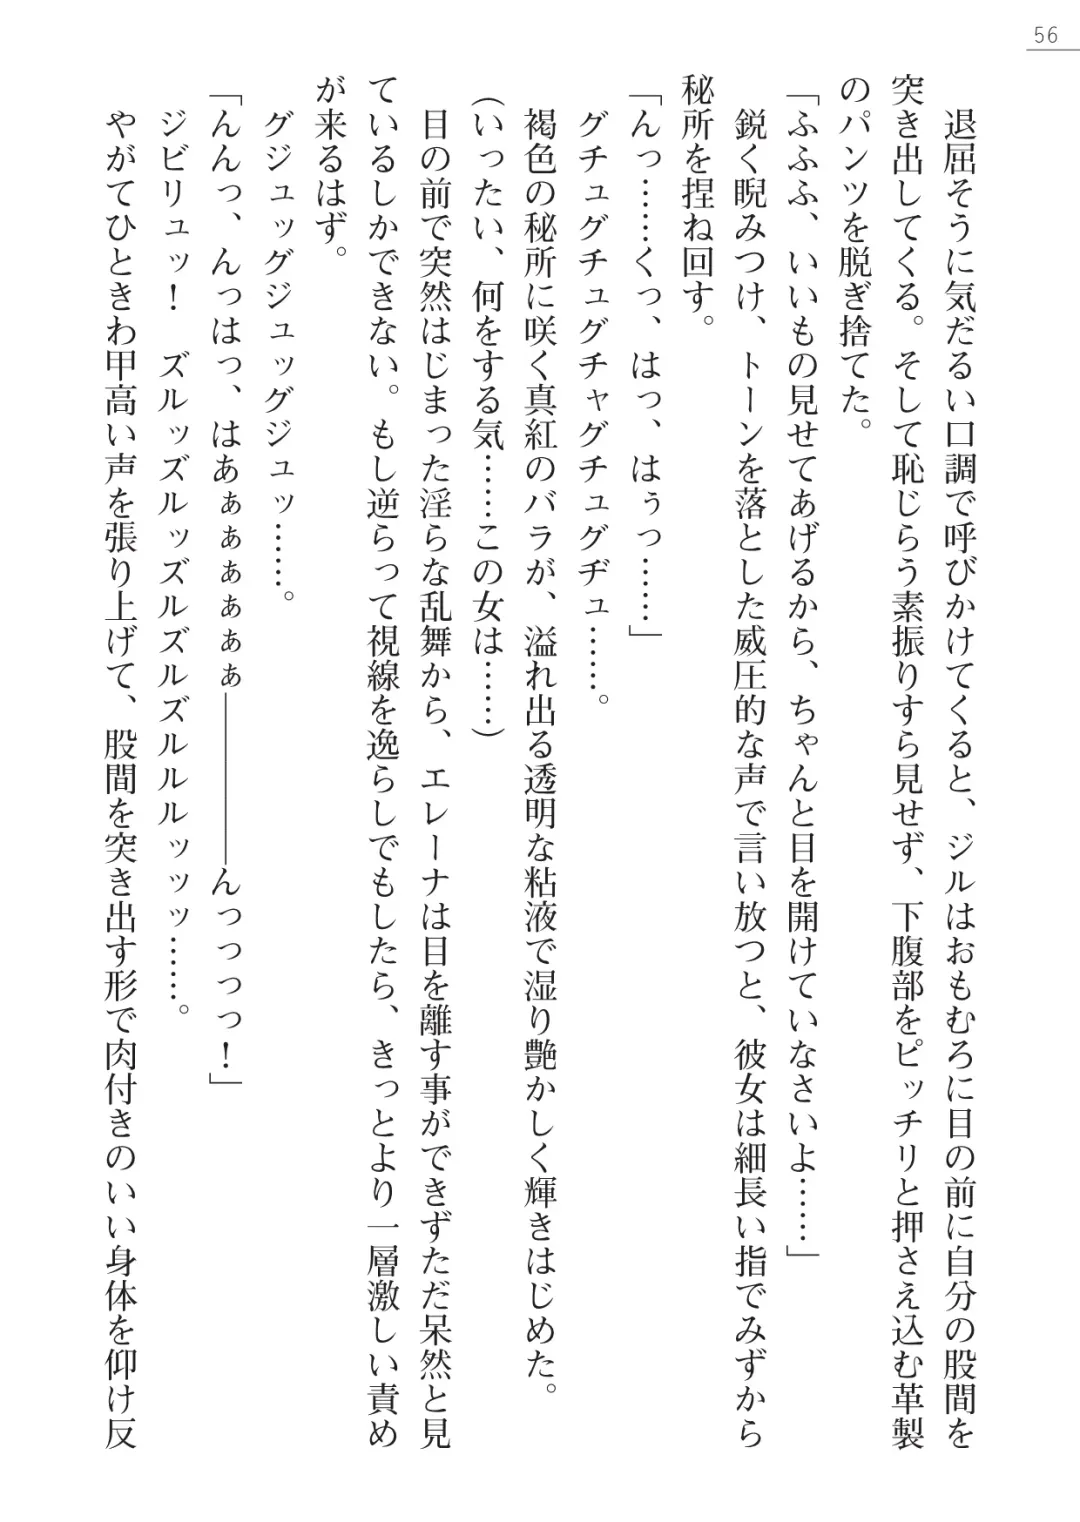 56
退屈そうに気だるい口調で呼びかけてくると、ジルはおもむろに目の前に自分の股間を
突き出してくる。そして恥じらう素振りすら見せず、下腹部をピッチリと押さえ込む革製
のパンツを脱ぎ捨てた。
「ふふふ、いいもの見せてあげるから、ちゃんと目を開けていなさいよ……」
鋭く睨みつけ、トーンを落とした威圧的な声で言い放つと、彼女は細長い指でみずから
秘所を捏ね回す。
「んっ……くっ、はっ、はぅっ……」
グチュグチュグチャグチュグヂュ……。
褐色の秘所に咲く真紅のバラが、溢れ出る透明な粘液で湿り艶かしく輝きはじめた。
(いったい、何をする気……この女は……)
目の前で突然はじまった淫らな乱舞から、エレーナは目を離す事ができずただ呆然と見
ているしかできない。もし逆らって視線を逸らしでもしたら、きっとより一層激しい責め
が来るはず。
グジュッグジュッグジュッ……。
「んんっ、んっはっ、はあぁぁぁぁぁ―――――んっっっっ！」
ジビリュッ！　ズルッズルッズルズルズルルルッッッ……。
やがてひときわ甲高い声を張り上げて、股間を突き出す形で肉付きのいい身体を仰け反